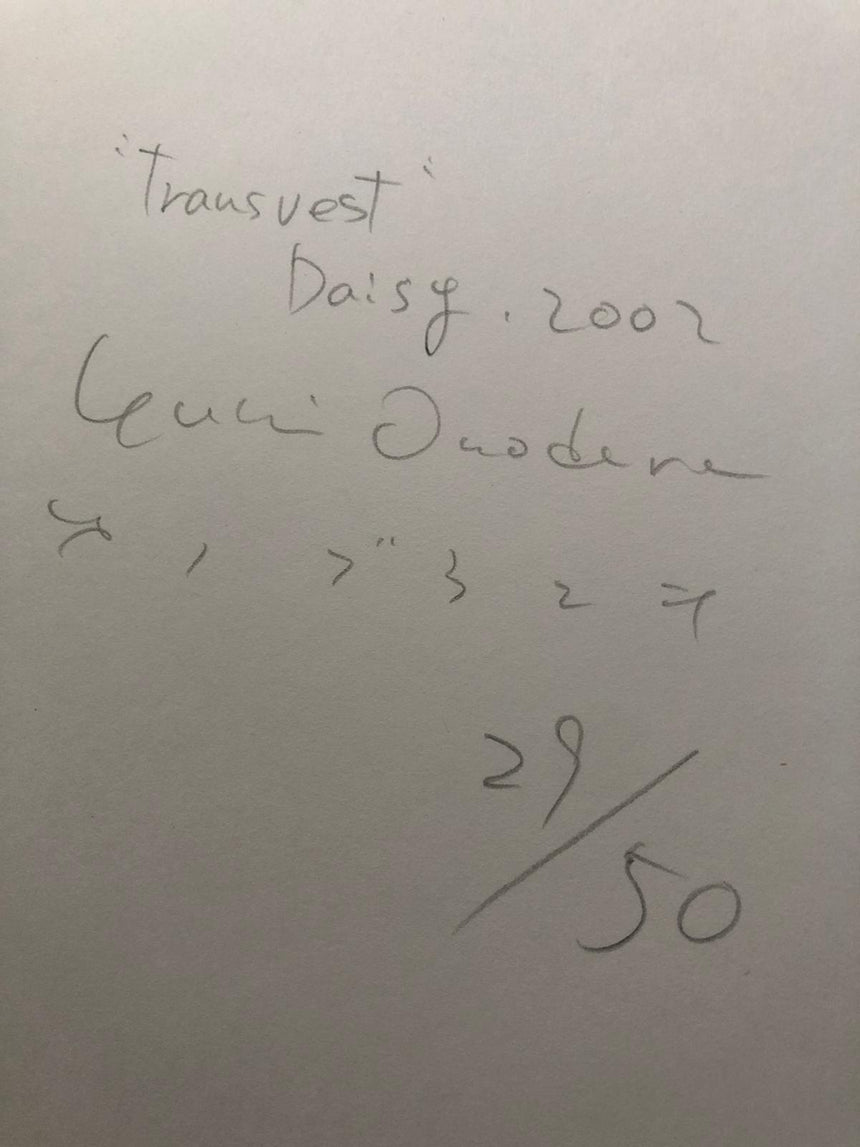 "Transvest"
Daisy. 2002
Yuki Onodera
オノデラユキ
29/50